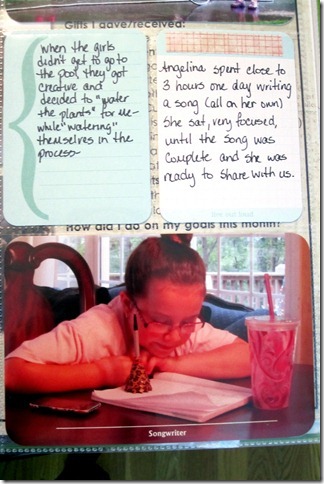 Gifts I gave/received:
When the girls
didn't get to go to
the pool, they got
creative and
decided to "water
the plants" for me-
while "watering"
themselves in the
process-
Angelina spent close to
3 hours one day writing
a song (all on her own)
She sat, very focused,
until the song was
complete and she was
ready to share with us.
How did I do on my goals this month?
Songwriter